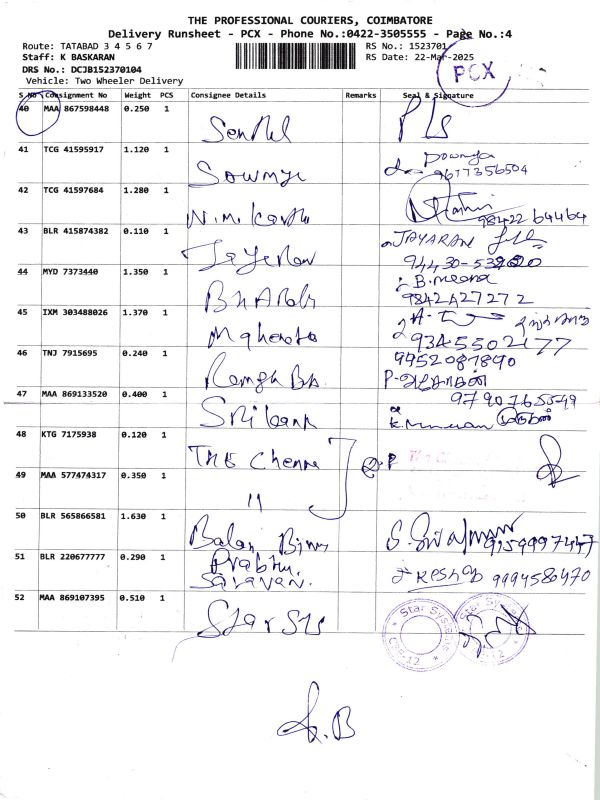 THE PROFESSIONAL COURIERS, COIMBATORE
Delivery Runsheet - PCX - Phone No.:0422-3505555 - Page No.:4
Route: TATABAD 3 4 5 6 7
RS No.: 1523701
Staff: K BASKARAN
RS Date: 22-Mar-2025
DRS No.: DCJB152370104
PCX
Vehicle: Two Wheeler Delivery
S No Consignment No Weight PCS Consignee Details Remarks Seal & Signature
40 MAA 867598448 0.250 1
41 TCG 41595917 1.120 1 Sowmya Sowmya
9677356504
42 TCG 41597684 1.280 1
98422 64464
43 BLR 415874382 0.110 1 JAYARAM
94430-53920
44 MYD 7373440 1.350 1 B.meena
9842427272
45 IXM 303488026 1.370 1
9345502177
46 TNJ 7915695 0.240 1 9952087890
47 MAA 869133520 0.400 1 Srikanth 9790765549
48 KTG 7175938 0.120 1 THE Chennai
49 MAA 577474317 0.350 1 "
50 BLR 565866581 1.630 1 9159997447
51 BLR 220677777 0.290 1 Prabhu 9994580470
Saravan.
52 MAA 869107395 0.510 1 Star Sys Star Systems Star Systems